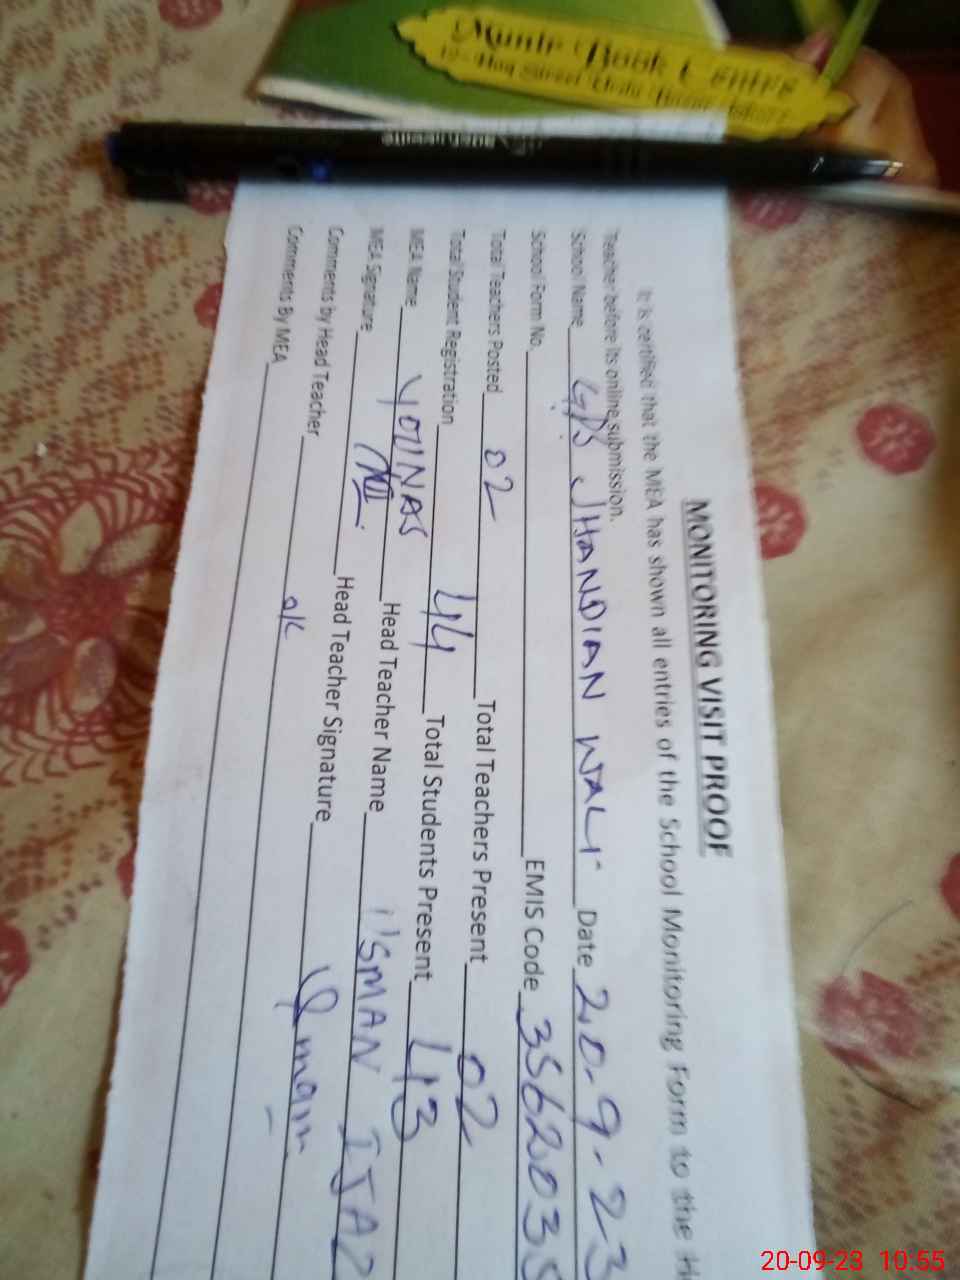 Munir Book Centre
MONITORING VISIT PROOF
It is certified that the MEA has shown all entries of the School Monitoring Form to the H
Teacher before its online submission.
School Name GPS JHANDIAN WALI Date 20-9-23
School Form No. EMIS Code 3562035
Total Teachers Posted 02 Total Teachers Present 02
Total Student Registration 44 Total Students Present 43
MEA Name YOUNAS Head Teacher Name USMAN IJAZ
MEA Signature Head Teacher Signature Usman
Comments by Head Teacher ok
Comments By MEA
20-09-23 10:55